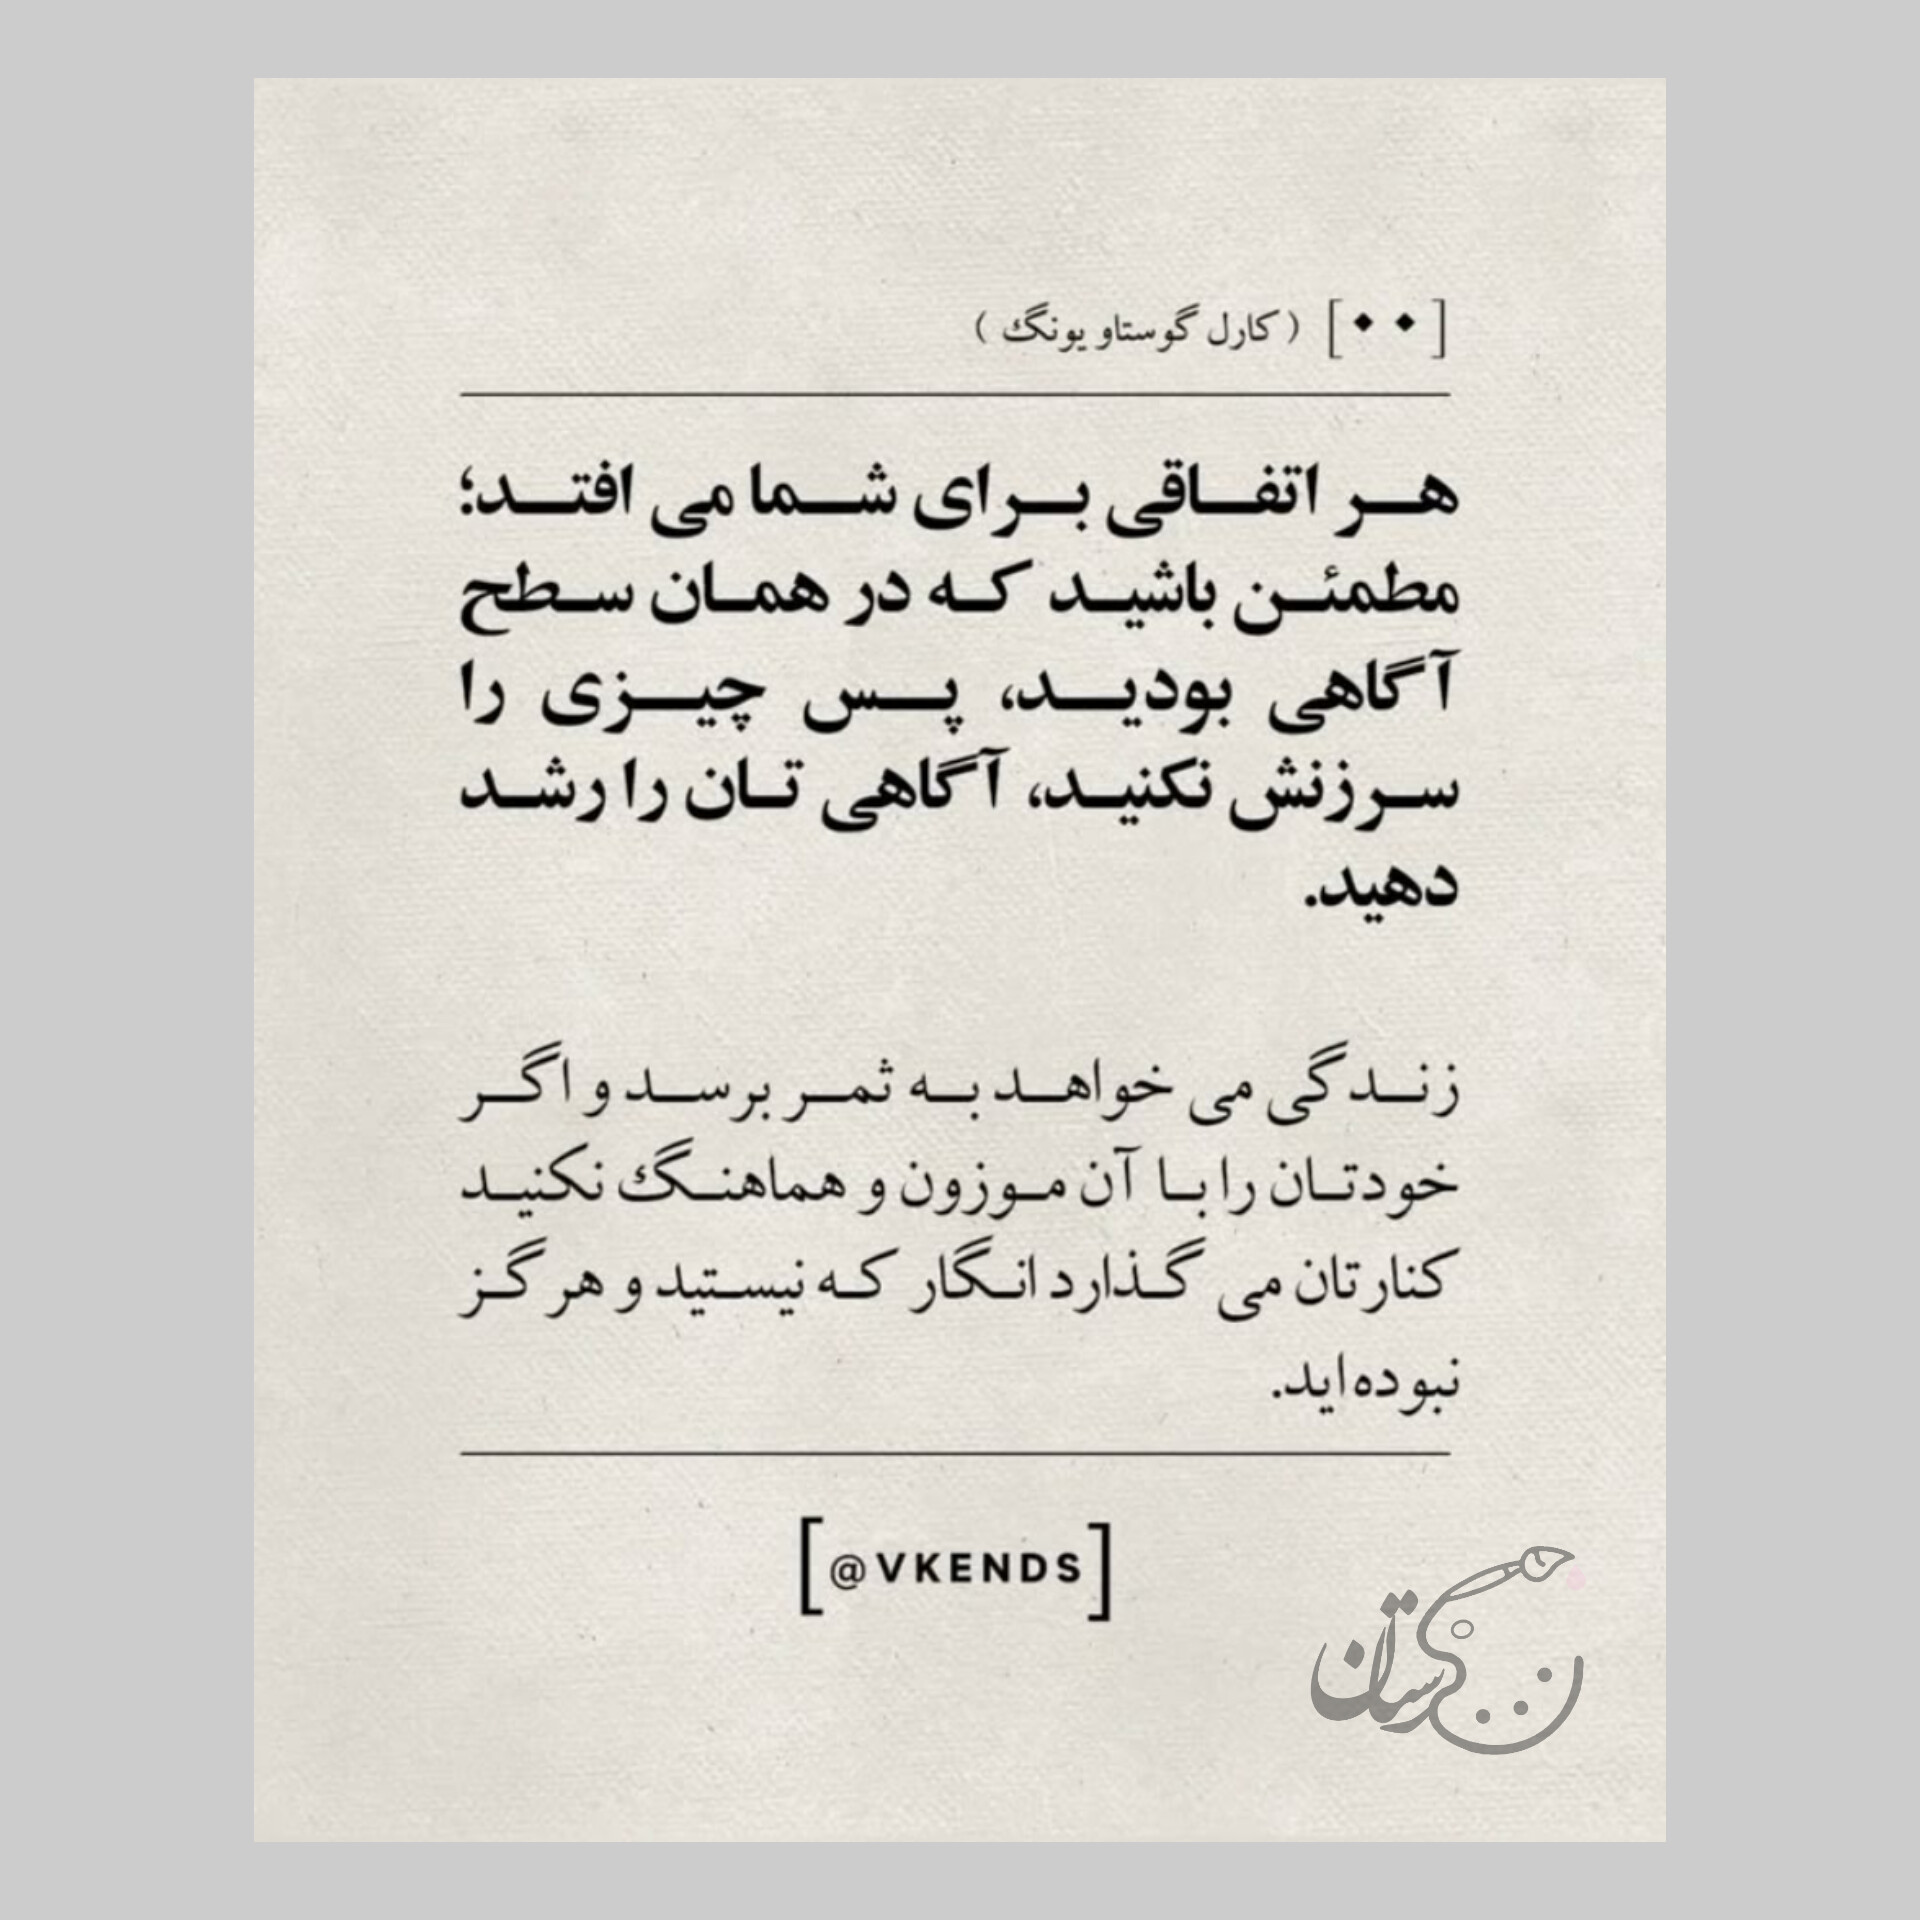 [◆ ◆] ( کارل گوستاو یونگ )
هر اتفاقی برای شما می افتد؛
مطمئن باشید که در همان سطح
آگاهی بودید، پس چیزی را
سرزنش نکنید، آگاهی تان را رشد
دهید.
زندگی می خواهد به ثمر برسد و اگر
خودتان را با آن موزون و هماهنگ نکنید
کنارتان می گذارد انگار که نیستید و هرگز
نبوده‌اید.
[@VKENDS]